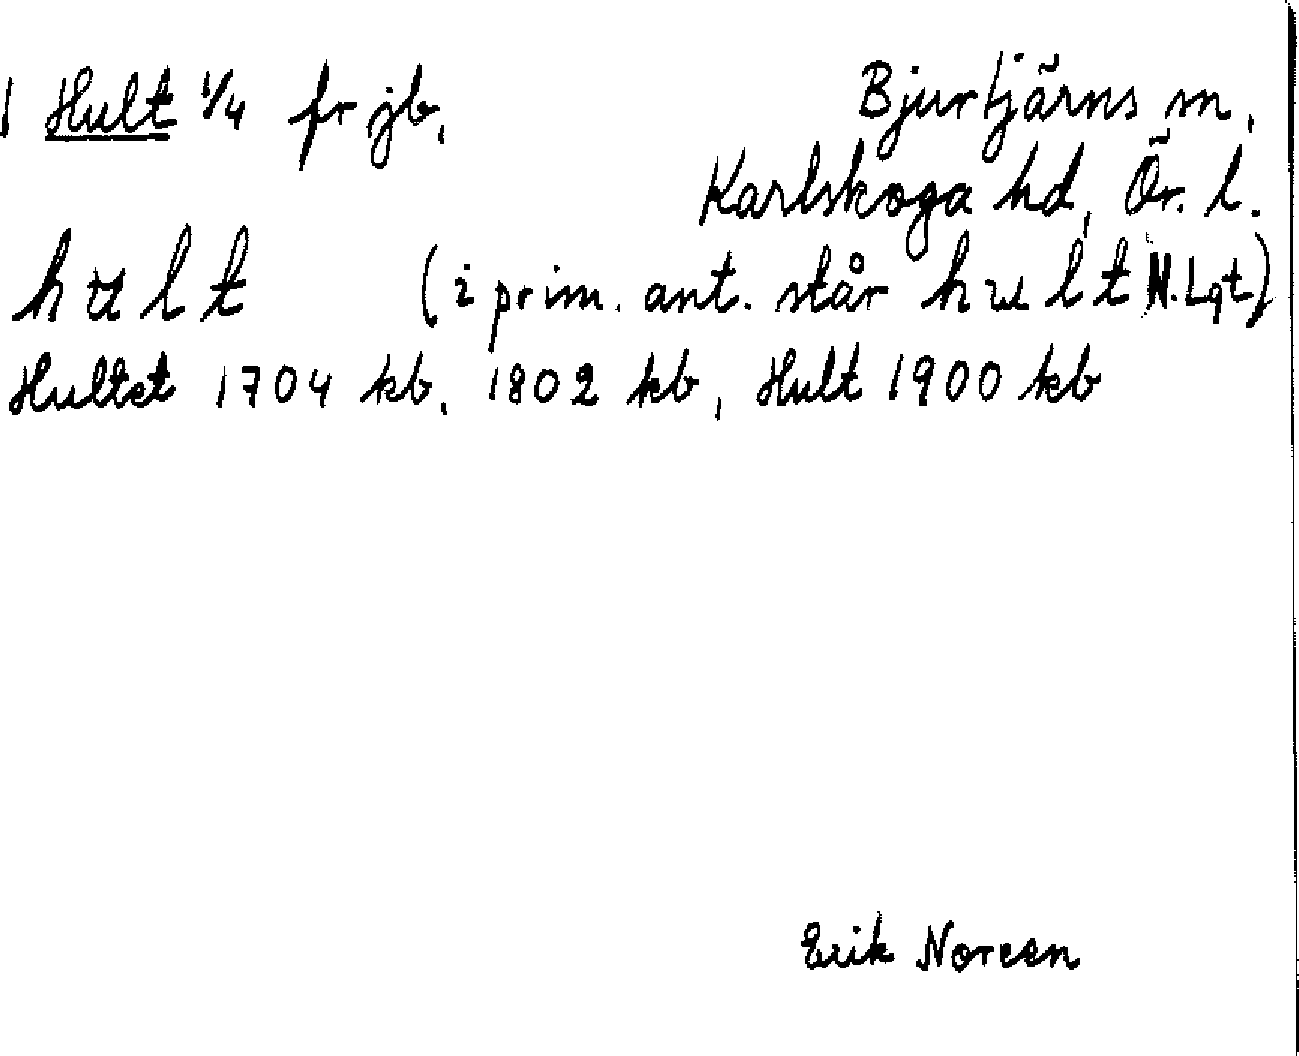 Hult 1/4 fr jb. Bjurtjärns sn,
Karlskoga hd, Ör. l.
hult (i prim. ant. står hult N. Lgt)
Hultet 1704 kb, 1802 kb, Hult 1900 kb
Erik Noreen